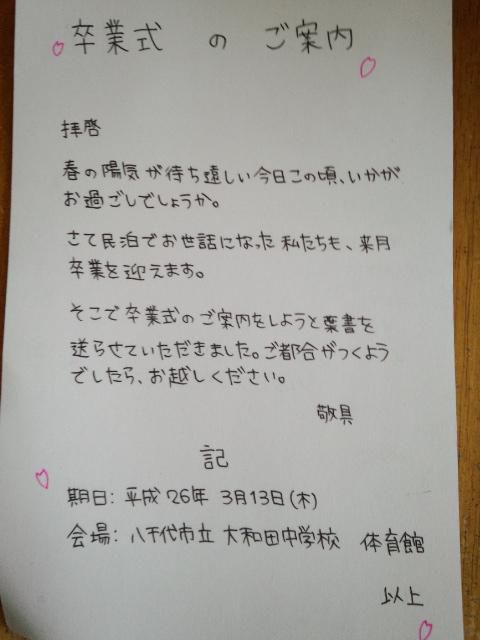 卒業式 の ご案内
拝啓
春の陽気が待ち遠しい今日この頃、いかが
お過ごしでしょうか。
さて民泊でお世話になった私たちも、来月
卒業を迎えます。
そこで卒業式のご案内をしようと葉書を
送らせていただきました。ご都合がつくよう
でしたら、お越しください。
敬具
記
期日: 平成26年 3月13日(木)
会場: 八千代市立 大和田中学校 体育館
以上